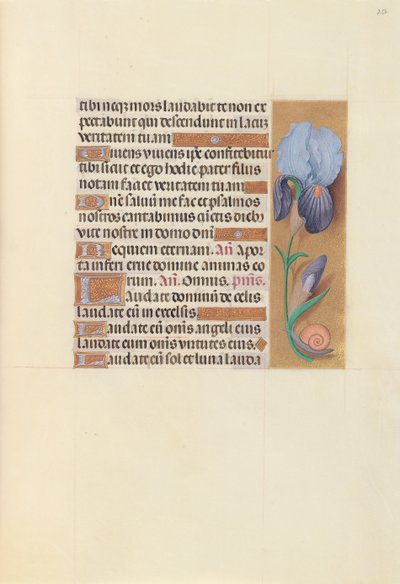 252
tibi neqz mors laudabit te non ex
pectabunt qui descendunt in lacuz
veritatem tuam
Vivens vivens ipse confitebitur
tibi sicut et ego hodie pater filiis
notam faciet veritatem tuam
Dne salvu me fac et psalmos
nostros cantabimus cūctis dieb
vite nostre in domo dni
Requiem eternam. Añ A por
ta inferi erue domine animas eo
rum. Añ. Omnis. Psmus.
Laudate dominū de celis
laudate eū in excelsis
Laudate eū omnes angeli eius
laudate eum omēs virtutes eius
Laudate eū sol et luna lauda